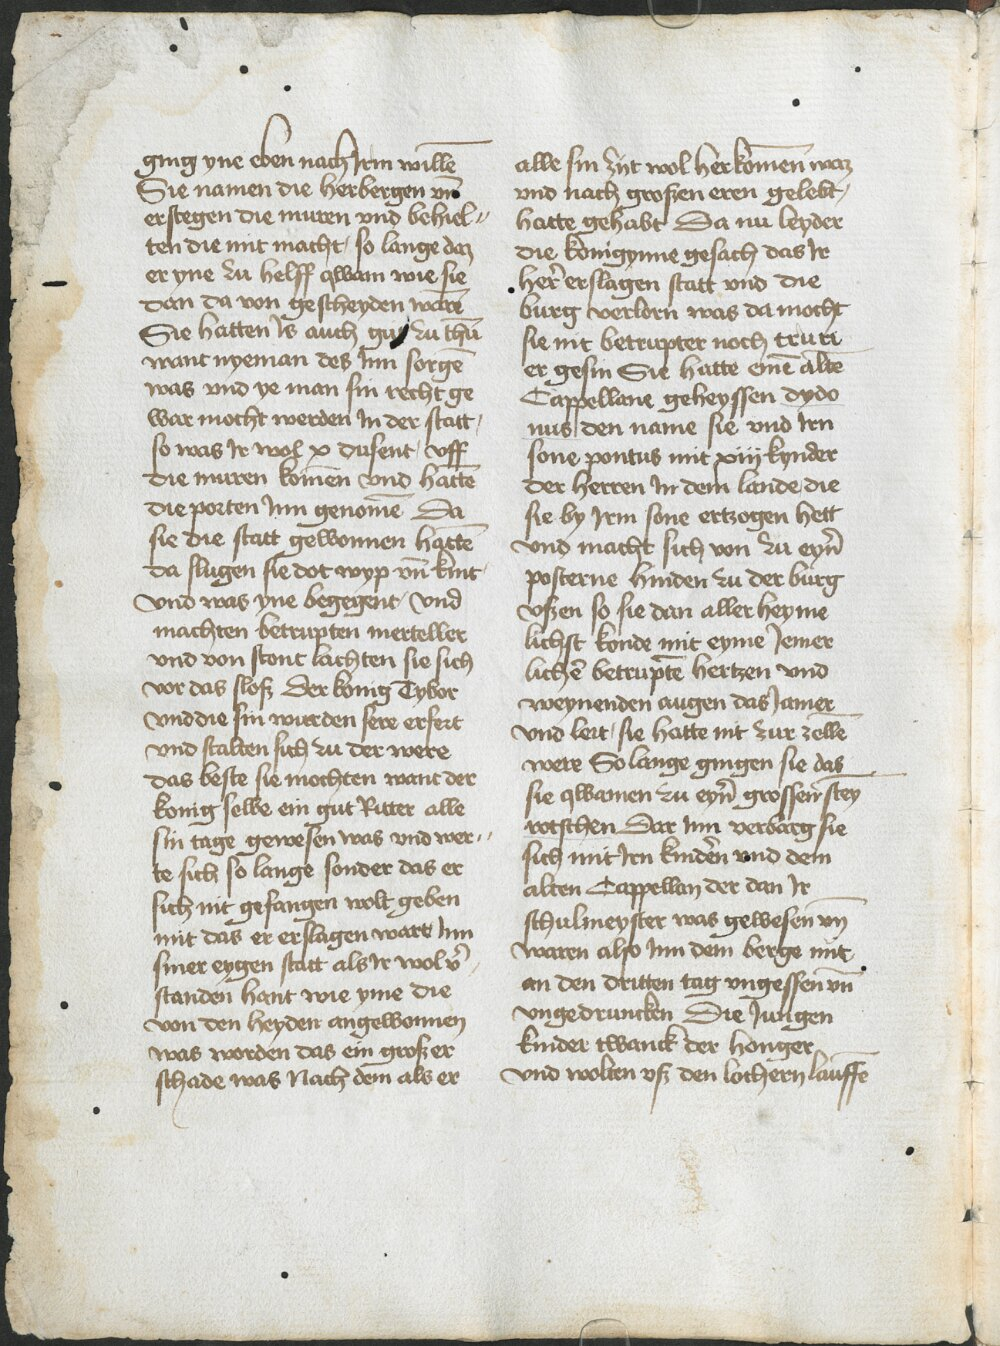 ging yne eben nach Irm wille
Sie namen die herbergen vn̄
erstegen die muren vnd behiel-
ten die mit macht, so lange daz
er yne zu helff qwam wie sie
dan da von gescheyden warē
Sie hatten Is auch gut zu thū
want nyeman des Inn sorgē
was vnd ye man sin recht ge
war mocht werden In der statt,
so was Ir wol x dusent, vff
die muren kom̄en vnd hattē
die porten Inn genom̄e Da
sie die statt gewonnen hattē
da slugen sie dot wyp vn̄ kint
vnd was yne begegent, vnd
machten betrupten merteller
vnd von stont lachten sie sich
vor das sloß Der konig Tybor
vnd die sin wurden sere erfert
vnd stalten sich zu der were
das beste sie mochten want der
konig selbe ein gut Ritter alle
sin tage gewesen was vnd wer-
te sich so lange sonder das er
sich nit gefangen wolt geben
mit das er erslagen wart Inn
siner eygen statt als Ir wol v̄-
standen hant wie yme die
von den heyden angewonnen
was worden das ein großer
schade was Nach dem als er
alle sin zijt wol herkom̄en waz
vnd nach großen eren gelebt,
hatte gehabt Da nu leyder
die konigynne gesach das Ir
her̄ erslagen statt vnd die
burg verlorn was da mocht
sie nit betrupter noch truri
er gesin Sie hatte einē altē
Cappellane geheyssen dydo
nus den name sie vnd Irn
sone pontus mit xiij kynder
der herren In dem lande die
sie by Irm sone ertzogen hett
vnd macht sich von zu eyn̄
posterne hinden zu der burg
vßen so sie dan aller heyme
lichst konde mit eyme Jemer
lichē betruptē hertzen vnd
weynenden augen das Jamer
vnd leit, sie hatte nit zur zelle
were So lange gingen sie das
sie qwamen zu eyn̄ grossen stey
rotschen Dar Inn verbarg sie
sich mit Irn kindern vnd dem
alten Cappellan der dan Ir
schulmeyster was gewesen vn̄
waren also Inn dem berge mit
an den dritten tag vngessen vn̄
vngedruncken Die Jungen
kinder twanck der honger
vnd wolten vß den lochern lauffē